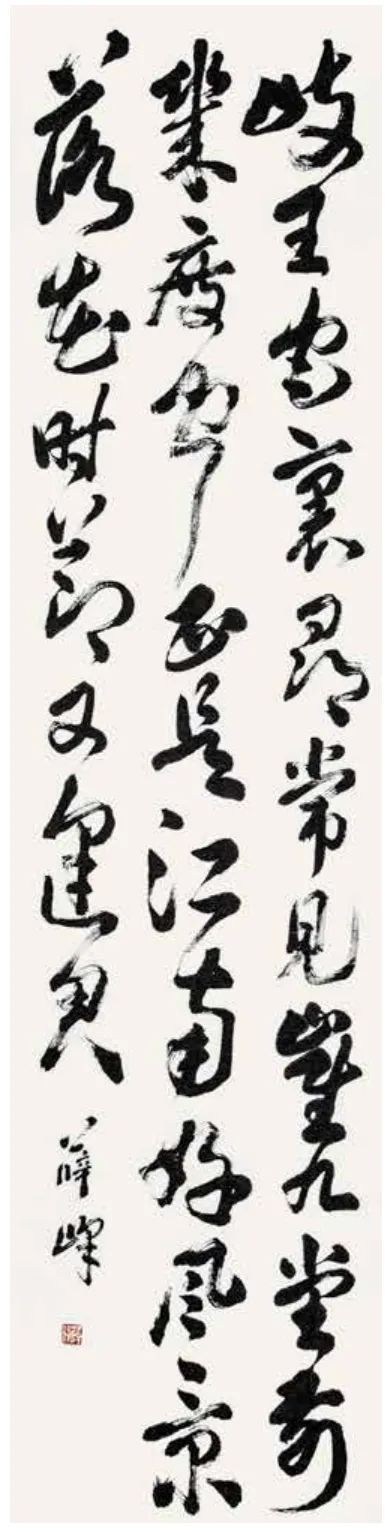 岐王宅裏尋常見崔九堂前
幾度聞正是江南好風景
落花时節又逢君
薛峰